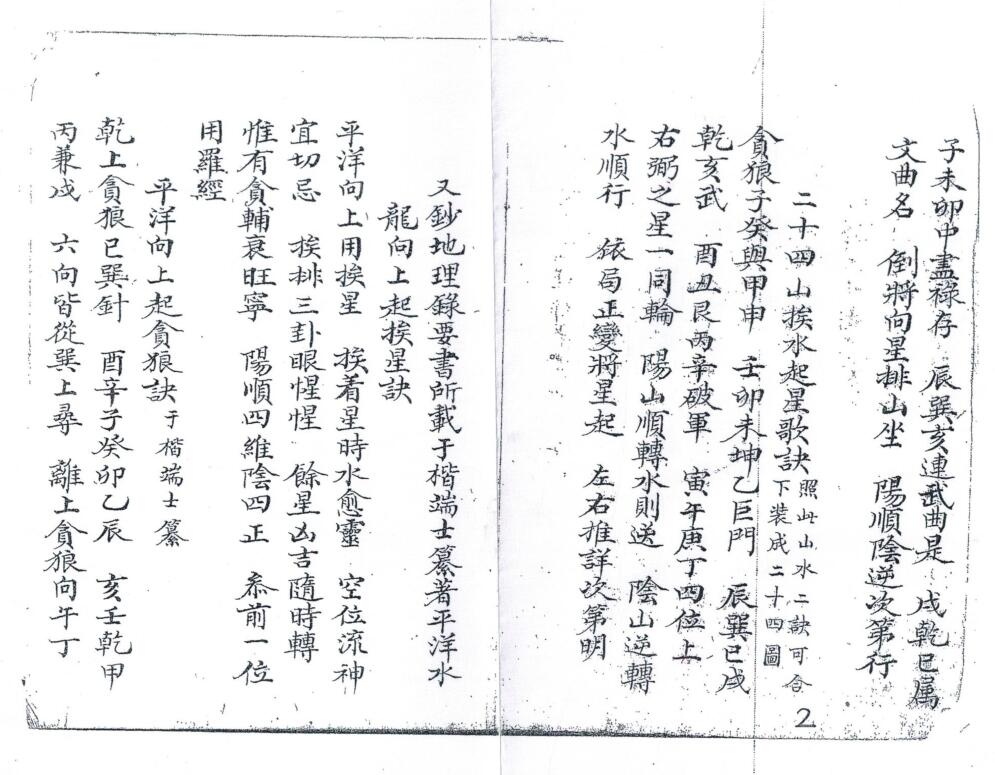 子未卯中盡祿存　辰巽亥連武曲是　戌乾巳属
文曲名　倒將向星排山坐　陽順陰逆次第行
二十四山挨水起星歌訣　照此山水二訣可合
下装成二十四圖
貪狼子癸與甲申　壬卯未坤乙巨門　辰巽巳戌
乾亥武　酉丑艮丙辛破軍　寅午庚丁四位上
右弼之星一同輪　陽山順轉水則逆　陰山逆轉
水順行　依局正變將星起　左右推詳次第明
2
又鈔地理錄要書所載于楷端士纂著平洋水
龍向上起挨星訣
平洋向上用挨星　挨着星時水愈靈　空位流神
宜切忌　挨排三卦眼惺惺　餘星凶吉隨時轉
惟有貪輔衰旺寧　陽順四維陰四正　叅前一位
用羅經
平洋向上起貪狼訣　于楷端士纂
乾上貪狼巳巽針　酉辛子癸卯乙辰　亥壬乾甲
丙兼戌　六向皆從巽上尋　離上貪狼向午丁